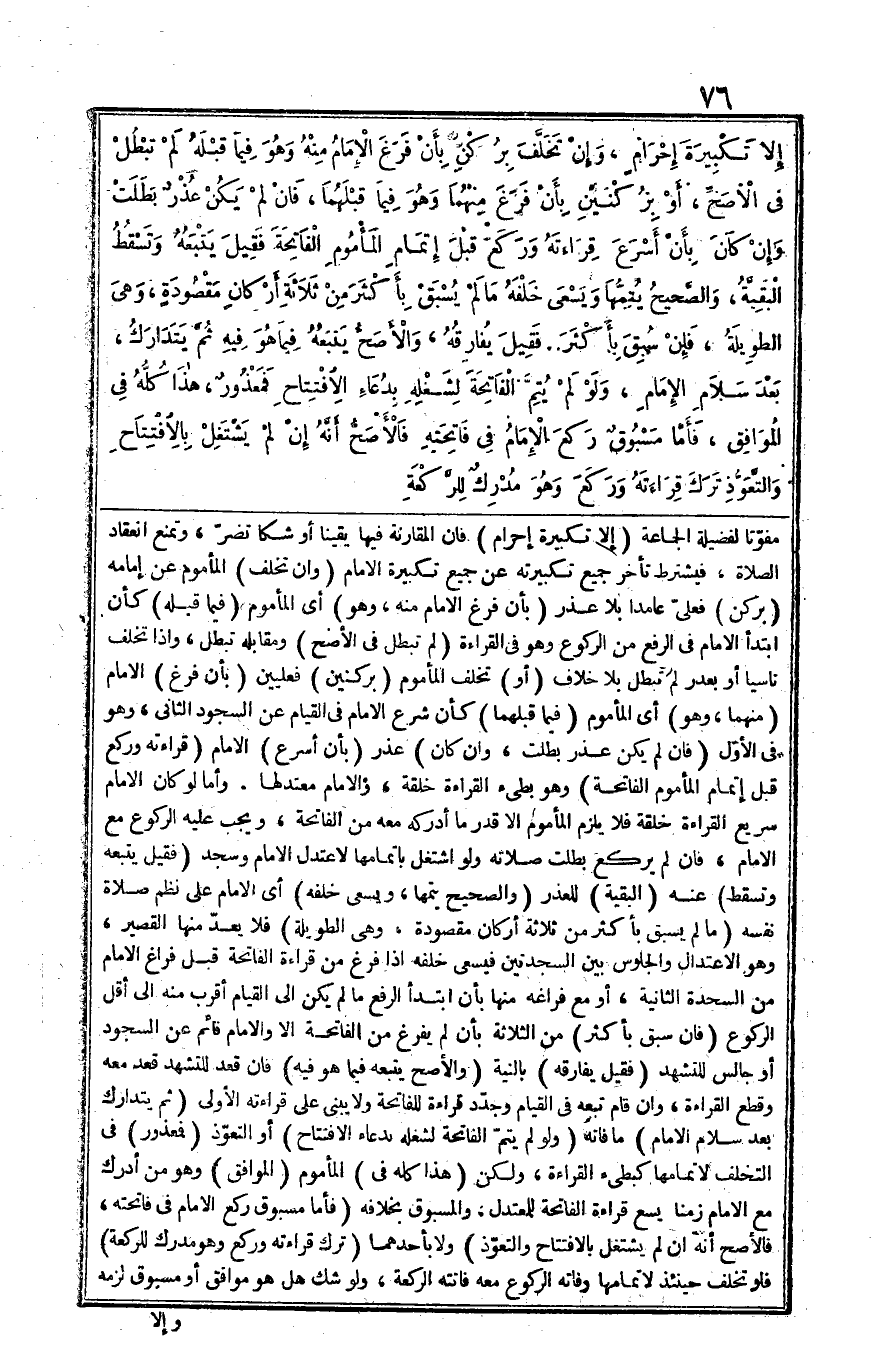 ٧٦
إِلا تَكْبِيرَةَ إِحْرَامٍ ، وَإِنْ تَخَلَّفَ بِرُكْنٍ بِأَنْ فَرَغَ الْإِمَامُ مِنْهُ وَهُوَ فِيمَا قَبْلَهُ لَمْ تَبْطُلْ
فِى الْأَصَحِّ ، أَوْ بِرُكْنَيْنِ بِأَنْ فَرَغَ مِنْهُمَا وَهُوَ فِيمَا قَبْلَهُمَا ، فَانْ لَمْ يَكُنْ عُذْرٌ بَطَلَتْ
وَإِنْ كَانَ بِأَنْ أَسْرَعَ قِرَاءَتَهُ وَرَكَعَ قَبْلَ إِتْمَامِ الْمَأْمُومِ الْفَاتِحَةَ فَقِيلَ يَتْبَعُهُ وَتَسْقُطُ
الْبَقِيَّةُ ، وَالصَّحِيحُ يُتِمُّهَا وَيَسْعَى خَلْفَهُ مَا لَمْ يُسْبَقْ بِأَكْثَرَ مِنْ ثَلَاثَةِ أَرْكَانٍ مَقْصُودَةٍ ، وَهِىَ
الطوِيلَةُ ، فَإِنْ سُبِقَ بِأَكْثَرَ.. فَقِيلَ يُفَارِقُهُ ، وَالْأَصَحُّ يَتْبَعُهُ فِيمَا هُوَ فِيهِ ثُمَّ يَتَدَارَكُ ،
بَعْدَ سَلَامِ الإِمَامِ ، وَلَوْ لَمْ يُتِمَّ الْفَاتِحَةَ لِشَغْلِهِ بِدُعَاءِ الِافْتِتَاحِ فَمَعْذُورٌ ، هٰذَا كُلُّهُ فِى
الْمُوَافِقِ ، فَأَمَّا مَسْبُوقٌ رَكَعَ الْإِمَامُ فِى فَاتِحَتِهِ فَالْأَصَحُّ أَنَّهُ إِنْ لَمْ يَشْتَغِلْ بِالِافْتِتَاحِ
وَالتَّعَوُّذِ تَرَكَ قِرَاءَتَهُ وَرَكَعَ وَهُوَ مُدْرِكٌ لِلرَّكْعَةِ
مفوّتا لفضيلة الجماعة ( إلا تكبيرة إحرام ) فان المقارنة فيها يقينا أو شكا تضرّ ، وتمنع انعقاد
الصلاة ، فيشترط تأخر جميع تكبيرته عن جميع تكبيرة الامام ( وان تخلف ) المأموم عن إمامه
( بركن ) فعلىّ عامدا بلا عذر ( بأن فرغ الامام منه ، وهو ) أى المأموم ( فيما قبله ) كأن
ابتدأ الامام فى الرفع من الركوع وهو فى القراءة ( لم تبطل فى الأصح ) ومقابله تبطل ، واذا تخلف
ناسيا أو بعذر لم تبطل بلا خلاف ( أو ) تخلف المأموم ( بركنين ) فعليين ( بأن فرغ ) الامام
( منهما ، وهو ) أى المأموم ( فيما قبلهما ) كأن شرع الامام فى القيام عن السجود الثانى ، وهو
فى الأوّل ( فان لم يكن عذر بطلت ، وان كان ) عذر ( بأن أسرع ) الامام ( قراءته وركع
قبل إتمام المأموم الفاتحة ) وهو بطىء القراءة خلقة ، والامام معتدلها . وأما لو كان الامام
سريع القراءة خلقة فلا يلزم المأموم الا قدر ما أدركه معه من الفاتحة ، ويجب عليه الركوع مع
الامام ، فان لم يركع بطلت صلاته ولو اشتغل باتمامها لاعتدل الامام وسجد ( فقيل يتبعه
وتسقط ) عنه ( البقية ) للعذر ( والصحيح يتمها ، ويسعى خلفه ) أى الامام على نظم صلاة
نفسه ( ما لم يسبق بأكثر من ثلاثة أركان مقصودة ، وهى الطويلة ) فلا يعدّ منها القصير ،
وهو الاعتدال والجلوس بين السجدتين فيسعى خلفه اذا فرغ من قراءة الفاتحة قبل فراغ الامام
من السجدة الثانية ، أو مع فراغه منها بأن ابتدأ الرفع ما لم يكن الى القيام أقرب منه الى أقل
الركوع ( فان سبق بأكثر ) من الثلاثة بأن لم يفرغ من الفاتحة الا والامام قائم عن السجود
أو جالس للتشهد ( فقيل يفارقه ) بالنية ( والأصح يتبعه فيما هو فيه ) فان قعد للتشهد قعد معه
وقطع القراءة ، وان قام تبعه فى القيام وجدّد قراءة للفاتحة ولا يبنى على قراءته الأولى ( ثم يتدارك
بعد سلام الامام ) ما فاته ( ولو لم يتمّ الفاتحة لشغله بدعاء الافتتاح ) أو التعوّذ ( فمعذور ) فى
التخلف لاتمامها كبطىء القراءة ، ولكن ( هذا كله فى ) المأموم ( الموافق ) وهو من أدرك
مع الامام زمنا يسع قراءة الفاتحة للمعتدل ، والمسبوق بخلافه ( فأما مسبوق ركع الامام فى فاتحته ،
فالأصح أنه ان لم يشتغل بالافتتاح والتعوّذ ) ولا بأحدهما ( ترك قراءته وركع وهو مدرك للركعة )
فلو تخلف حينئذ لاتمامها وفاته الركوع معه فاتته الركعة ، ولو شك هل هو موافق أو مسبوق لزمه
وإلا